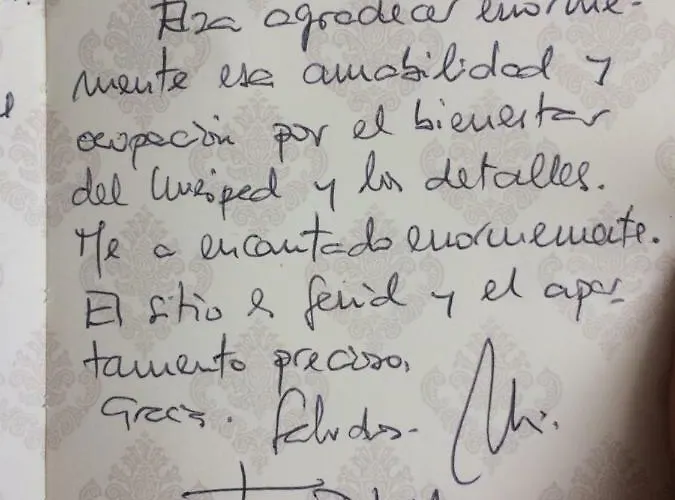 agradecer enorme-
mente esa amabilidad y
ocupación por el bienestar
del huésped y los detalles.
Me a encantado enormemente.
El sitio es genial y el apar-
tamento precioso.
Gracias. Saludos.